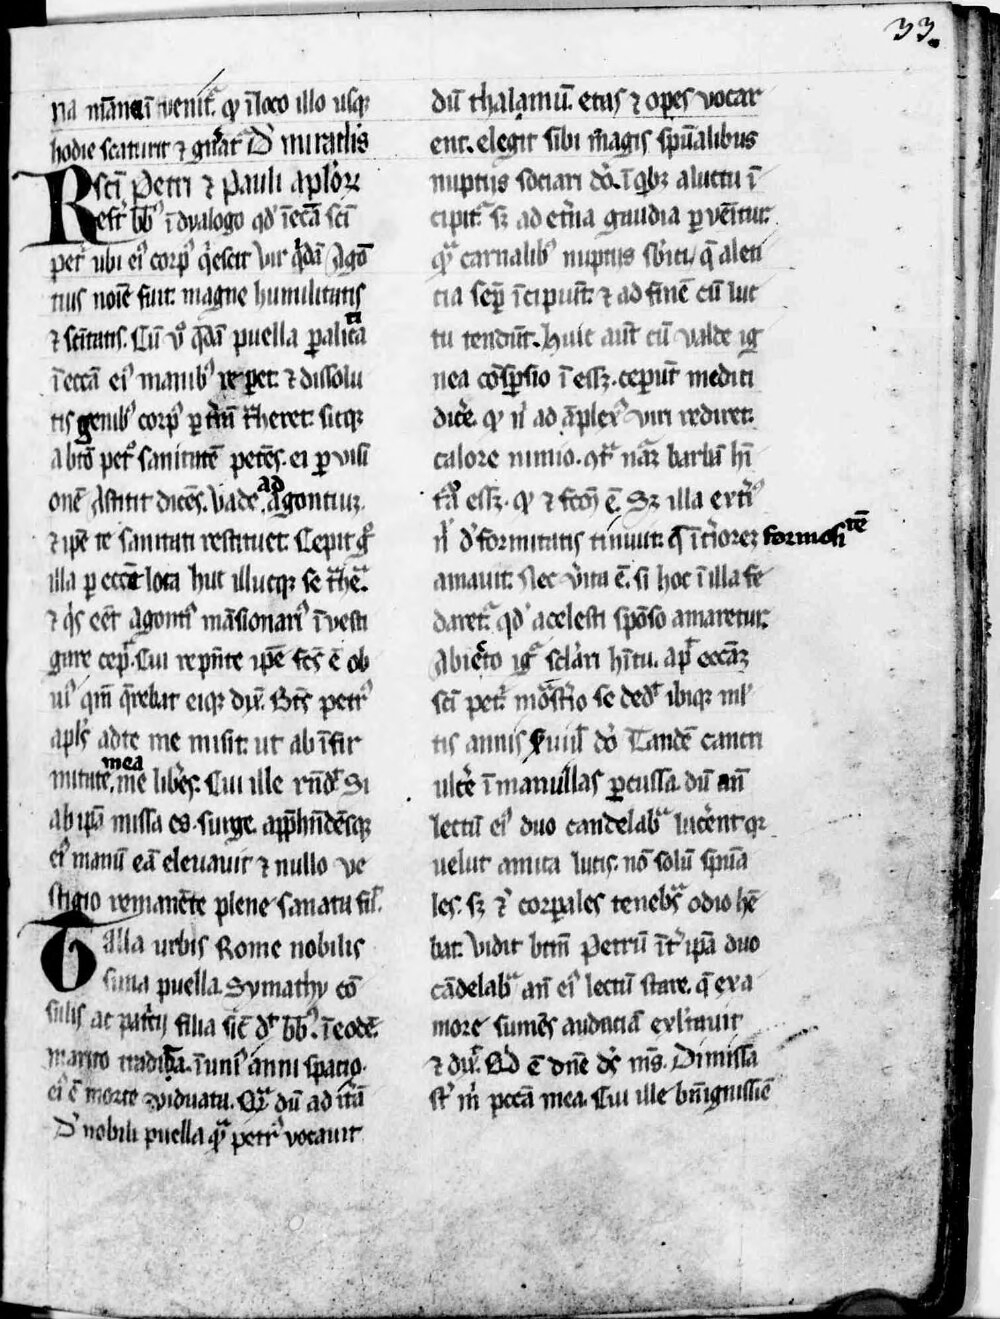 33.
na manaī venit᷑ ꝙ ī loco illo usqꝫ
hodie scaturit ⁊ gn̄at᷑ D᷑ miraclis
sc̄i Petri ⁊ Pauli ap̄loꝝ
Refert bb̄ ī dyalogo qd̓ ī ecc̄a sc̄i
petr̓ ubi ei᷒ corp᷒ q̓escit vir q̓dā Ago
tius noīe fuit. magne humilitatis
⁊ sc̄itatis. Cū v̓o q̄dā puella ꝑaliti
ca
ī ecc̄a ei᷒ manib᷒ reperet. ⁊ dissolu
tis genib᷒ corp᷒ ꝑ tr̄ā t̓heret. sicqꝫ
a btō pet̓o sanitatē petēs. ei ꝑ visi
onē astitit dicēs. Vade ad Agontiuꝫ.
⁊ ip̄e te sanitati restituet. Cepit g̓
illa ꝑ ecc̄e loca huc illucqꝫ se t̓he᷑.
⁊ q̓s eēt agonti᷒ māsionari᷒ ī vesti
gare cep̓. Cui repn̄te ip̄e fc̄s ē ob
ui᷒ qm̄ q̄rebat eiqꝫ dix̓. Bt̄s petr᷒
apl̓s ad te me misit. ut ab ī fir
mitate mea me lib̓es. Cui ille rn̄d̓ Si
ab ip̄o missa es. surge. app̄hn̄dēsqꝫ
ei᷒ manū eā eleuauit ⁊ nullo ve
stigio remanēte plene sanata fu᷑.
Galla urbis Rome nobilis
sima puella. Symachy cō
sulis ac pat̓cij filia sic̄ d᷑ bb̄᷒. ī eodē
marito tradita. ī uni᷒ anni spatio.
ei᷒ ē morte viduata. Q᷑ dū ad itā
d̓ nobili puella q᷑ petr᷒ vocauit
dū thalamū. etas ⁊ opes vocar
ent. elegit sibi magis sp̄ualibus
nuptijs sociari dō. ī qibꝫ a luctu ī
cipit᷑ sꝫ ad et̓na gaudia ꝑvenit᷑.
q᷑ carnalib᷒ nuptijs sb̓ici, q̄ a leti
tia sep̄ īcipiūt. ⁊ ad finē cū luc
tu tendūt. Huic aūt cū valde ig
nea cōsp̄sio ī essꝫ. ceperūt medici
dic̓e. ꝙ n̓ ad āplex᷒ viri rediret.
calore nimio. ꝯt᷑ nat᷑ā barbā hī
t̓a essꝫ. ꝙ ⁊ fcm̄ ē Sꝫ illa ext̓i᷒
n̓ d̓formitatis timuit. q̄ īt̓iorez formosi
tē
amauit. Nec v̓ita ē. si hoc ī illa fe
daret᷑. qd̓ a celesti spōso amaretur.
Abiecto ig̓ sclari hītu. ap̓ ecc̄aꝫ
sc̄i pet᷑. mōst̓io se ded̓ ibiqꝫ ml̓
tis annis s̓uiuit dō Tandē cancri
ulc̓e ī mamillas ꝑcussa. dū an̄
lectū ei᷒ duo candelab᷑ luc̓ent qꝫ
uelut amica lucis. nō solū sp̄ua
les. sꝫ ⁊ corꝑales teneb᷑s odio hē
bat. Vidit btm̄ Petrū īt᷑ ip̄a duo
cādelab᷑ an̄ ei᷒ lectū stare. q̄ exa
more sumēs audaciā exl̓tauit
⁊ dix̓. Qd̓ ē dn̄e d̓s ms̄. Dimissa
s᷑t m̓ pecc̄a mea. Cui ille bn̄ignissīe